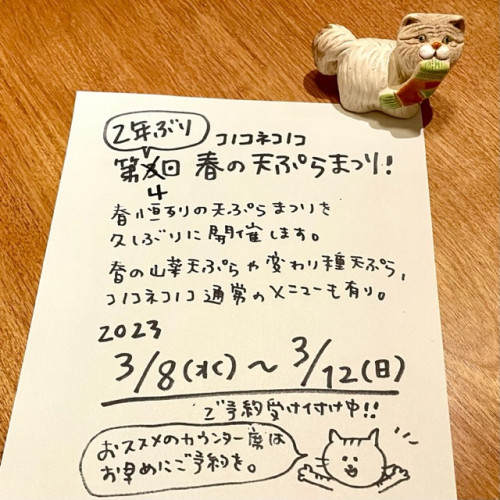 2年ぶり
コノコネコノコ
第回 春の天ぷらまつり!
4
春恒例の天ぷらまつりを
久しぶりに開催します。
春の山菜天ぷらや変わり種天ぷら、
コノコネコノコ通常のメニューも有り。
2023
3/8(水)〜3/12(日)
ご予約受け付け中!!
おススメのカウンター席は
お早めにご予約を。